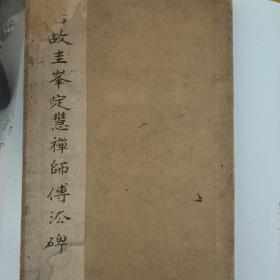 故圭峯定慧禪師傅法碑